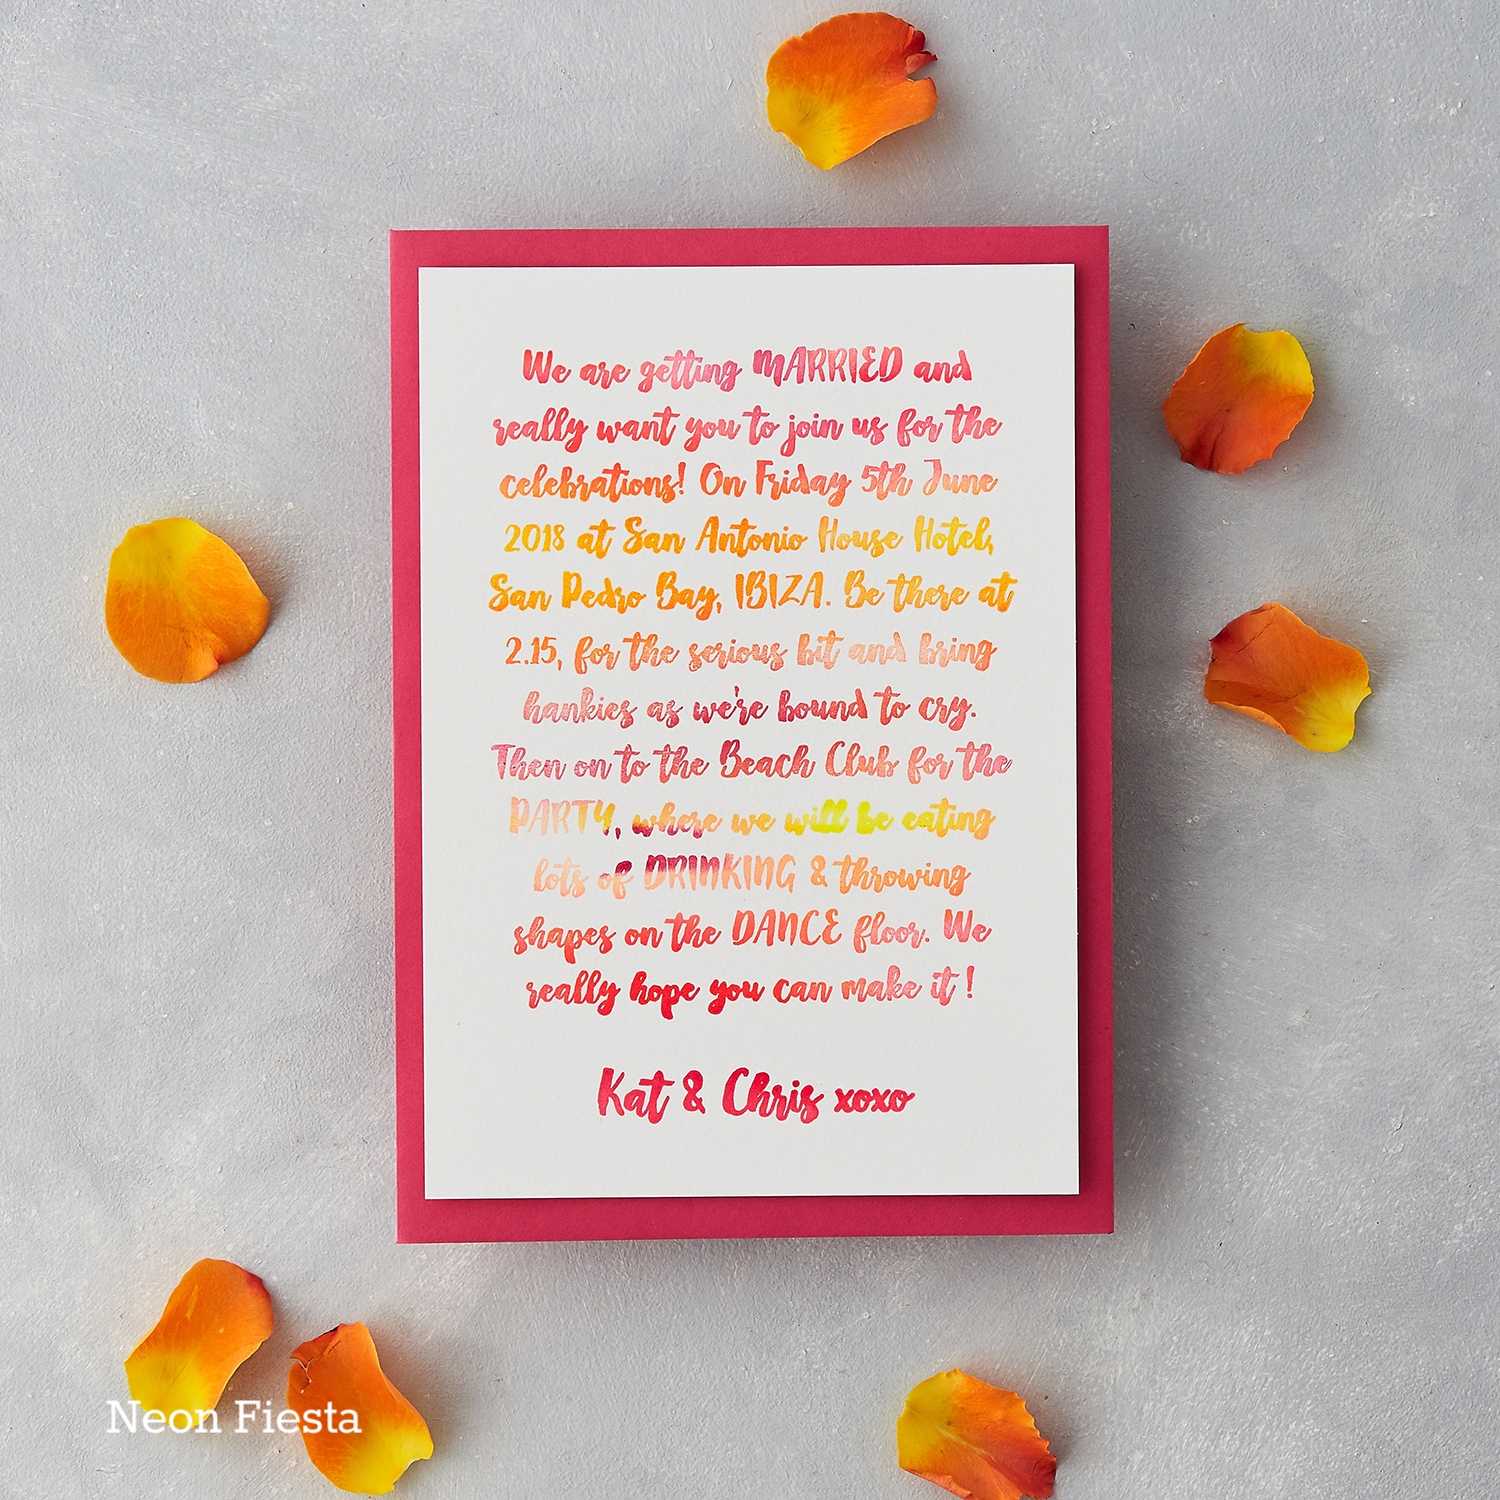 We are getting MARRIED and
really want you to join us for the
celebrations! On Friday 5th June
2018 at San Antonio House Hotel,
San Pedro Bay, IBIZA. Be there at
2.15, for the serious bit and bring
hankies as we're bound to cry.
Then on to the Beach Club for the
PARTY, where we will be eating
lots of DRINKING & throwing
shapes on the DANCE floor. We
really hope you can make it !
Kat & Chris xoxo
Neon Fiesta